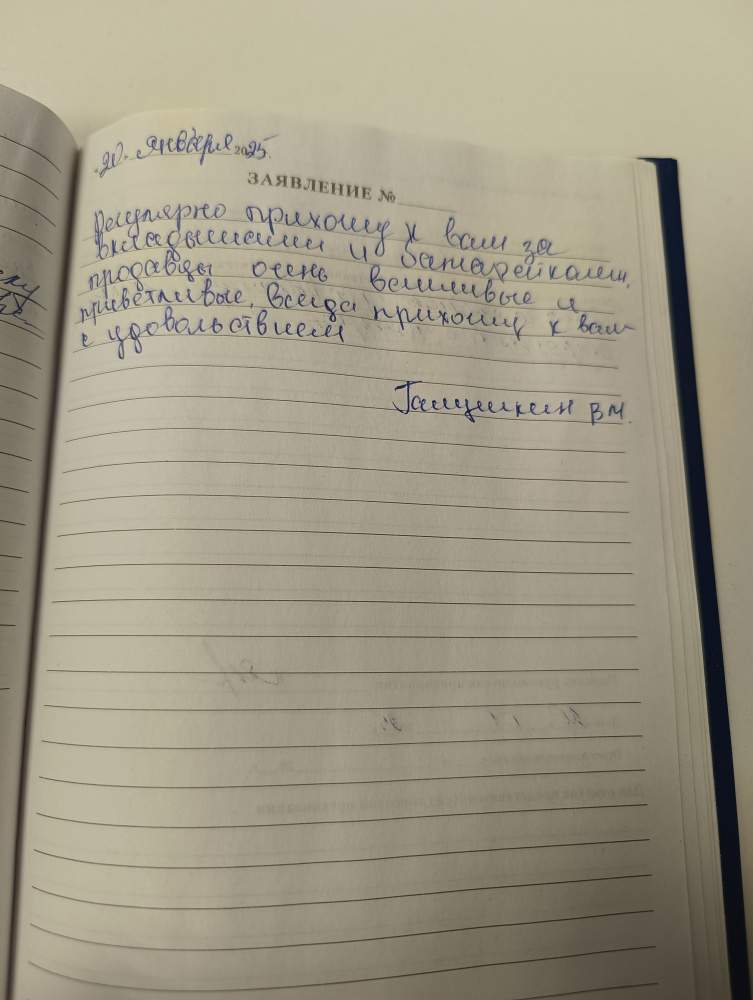 20. января 2025.
ЗАЯВЛЕНИЕ №
Регулярно прихожу к вам за
вкладышами и батарейками,
продавцы очень вежливые и
приветливые. Всегда прихожу к вам
с удовольствием
В М.